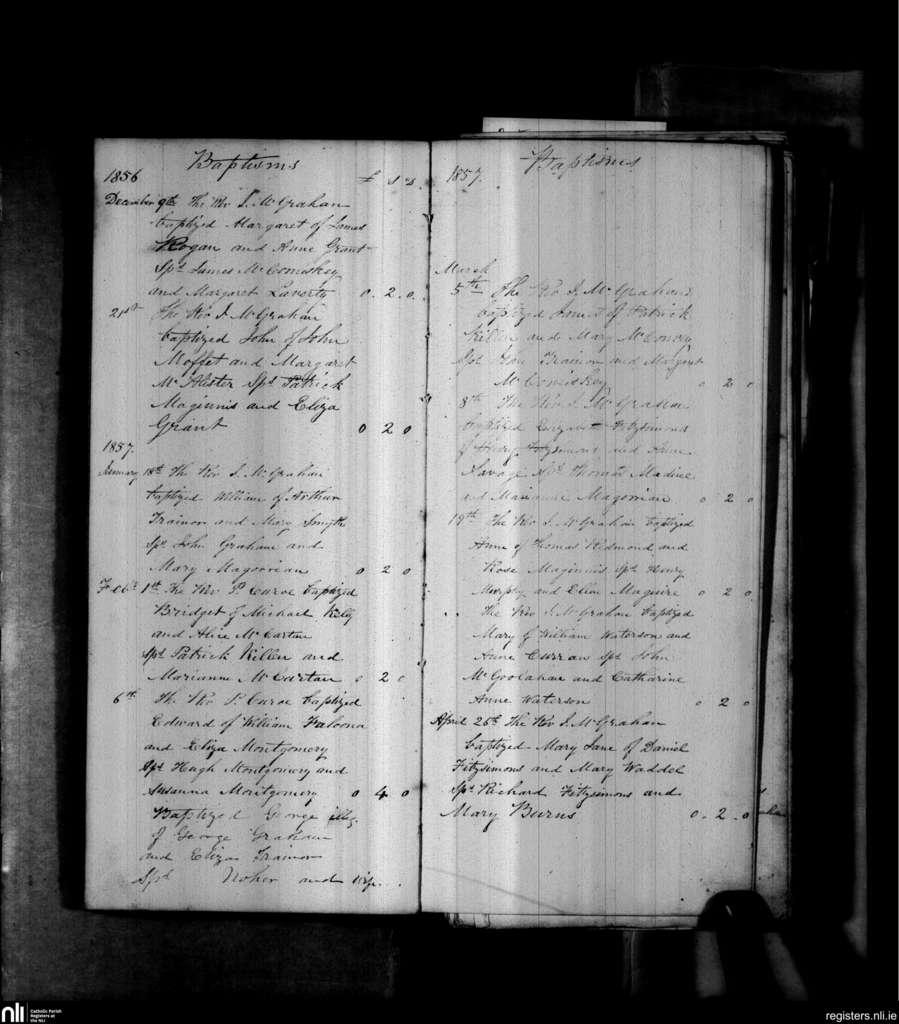 Baptisms
1856 £ s d.
December 9th The Rev J. McGrahan
baptized Margaret of James
Rogan and Anne Grant
Sps James McComiskey
and Margaret Laverty 0. 2. 0.
21st The Rev J. McGrahan
baptized John of John
Moffet and Margaret
McAlister Sps Patrick
Maginnis and Eliza
Grant 0 2 0
1857.
January 18th The Rev J. McGrahan
baptized William of Arthur
Trainor and Mary Smyth
Sps John Graham and
Mary Magoorian 0 2 0
Feb. 1st The Rev P. Curoe baptized
Bridget of Michael Kelly
and Alice McCartan
Sps Patrick Killen and
Marianne McCartan 0 2 0
6th The Rev P. Curoe baptized
Edward of William Faloona
and Eliza Montgomery
Sps Hugh Montgomery and
Susanna Montgomery 0 4 0
Baptized George illeg.
of George Graham
and Eliza Trainor
Sps Noher and wife.
Baptisms
1857.
March
5th The Rev J. McGrahan
baptized of Patrick
Killen and Mary McConvey
Sps Trainor and Margaret
McComiskey 0 2 0
8th The Rev J. McGrahan
baptized Elizabeth Fitzsimons
of Henry Fitzsimons and Anne
Savage Sps Thomas Madine
and Marianne Magorrian 0 2 0
19th The Rev J. McGrahan baptized
Anne of Thomas Redmond and
Rose Maginnis Sps Henry
Murphy and Ellen Maguire 0 2 0.
" The Rev J. McGrahan baptized
Mary of William Waterson and
Anne Curran Sps John
McGoolahan and Catharine
Anne Waterson 0 2 0
April 26th The Rev J. McGrahan
baptized Mary Jane of Daniel
Fitzsimons and Mary Waddel
Sps Richard Fitzsimons and
Mary Burns 0. 2. 0
nli
Catholic Parish
Registers at
the NLI
registers.nli.ie